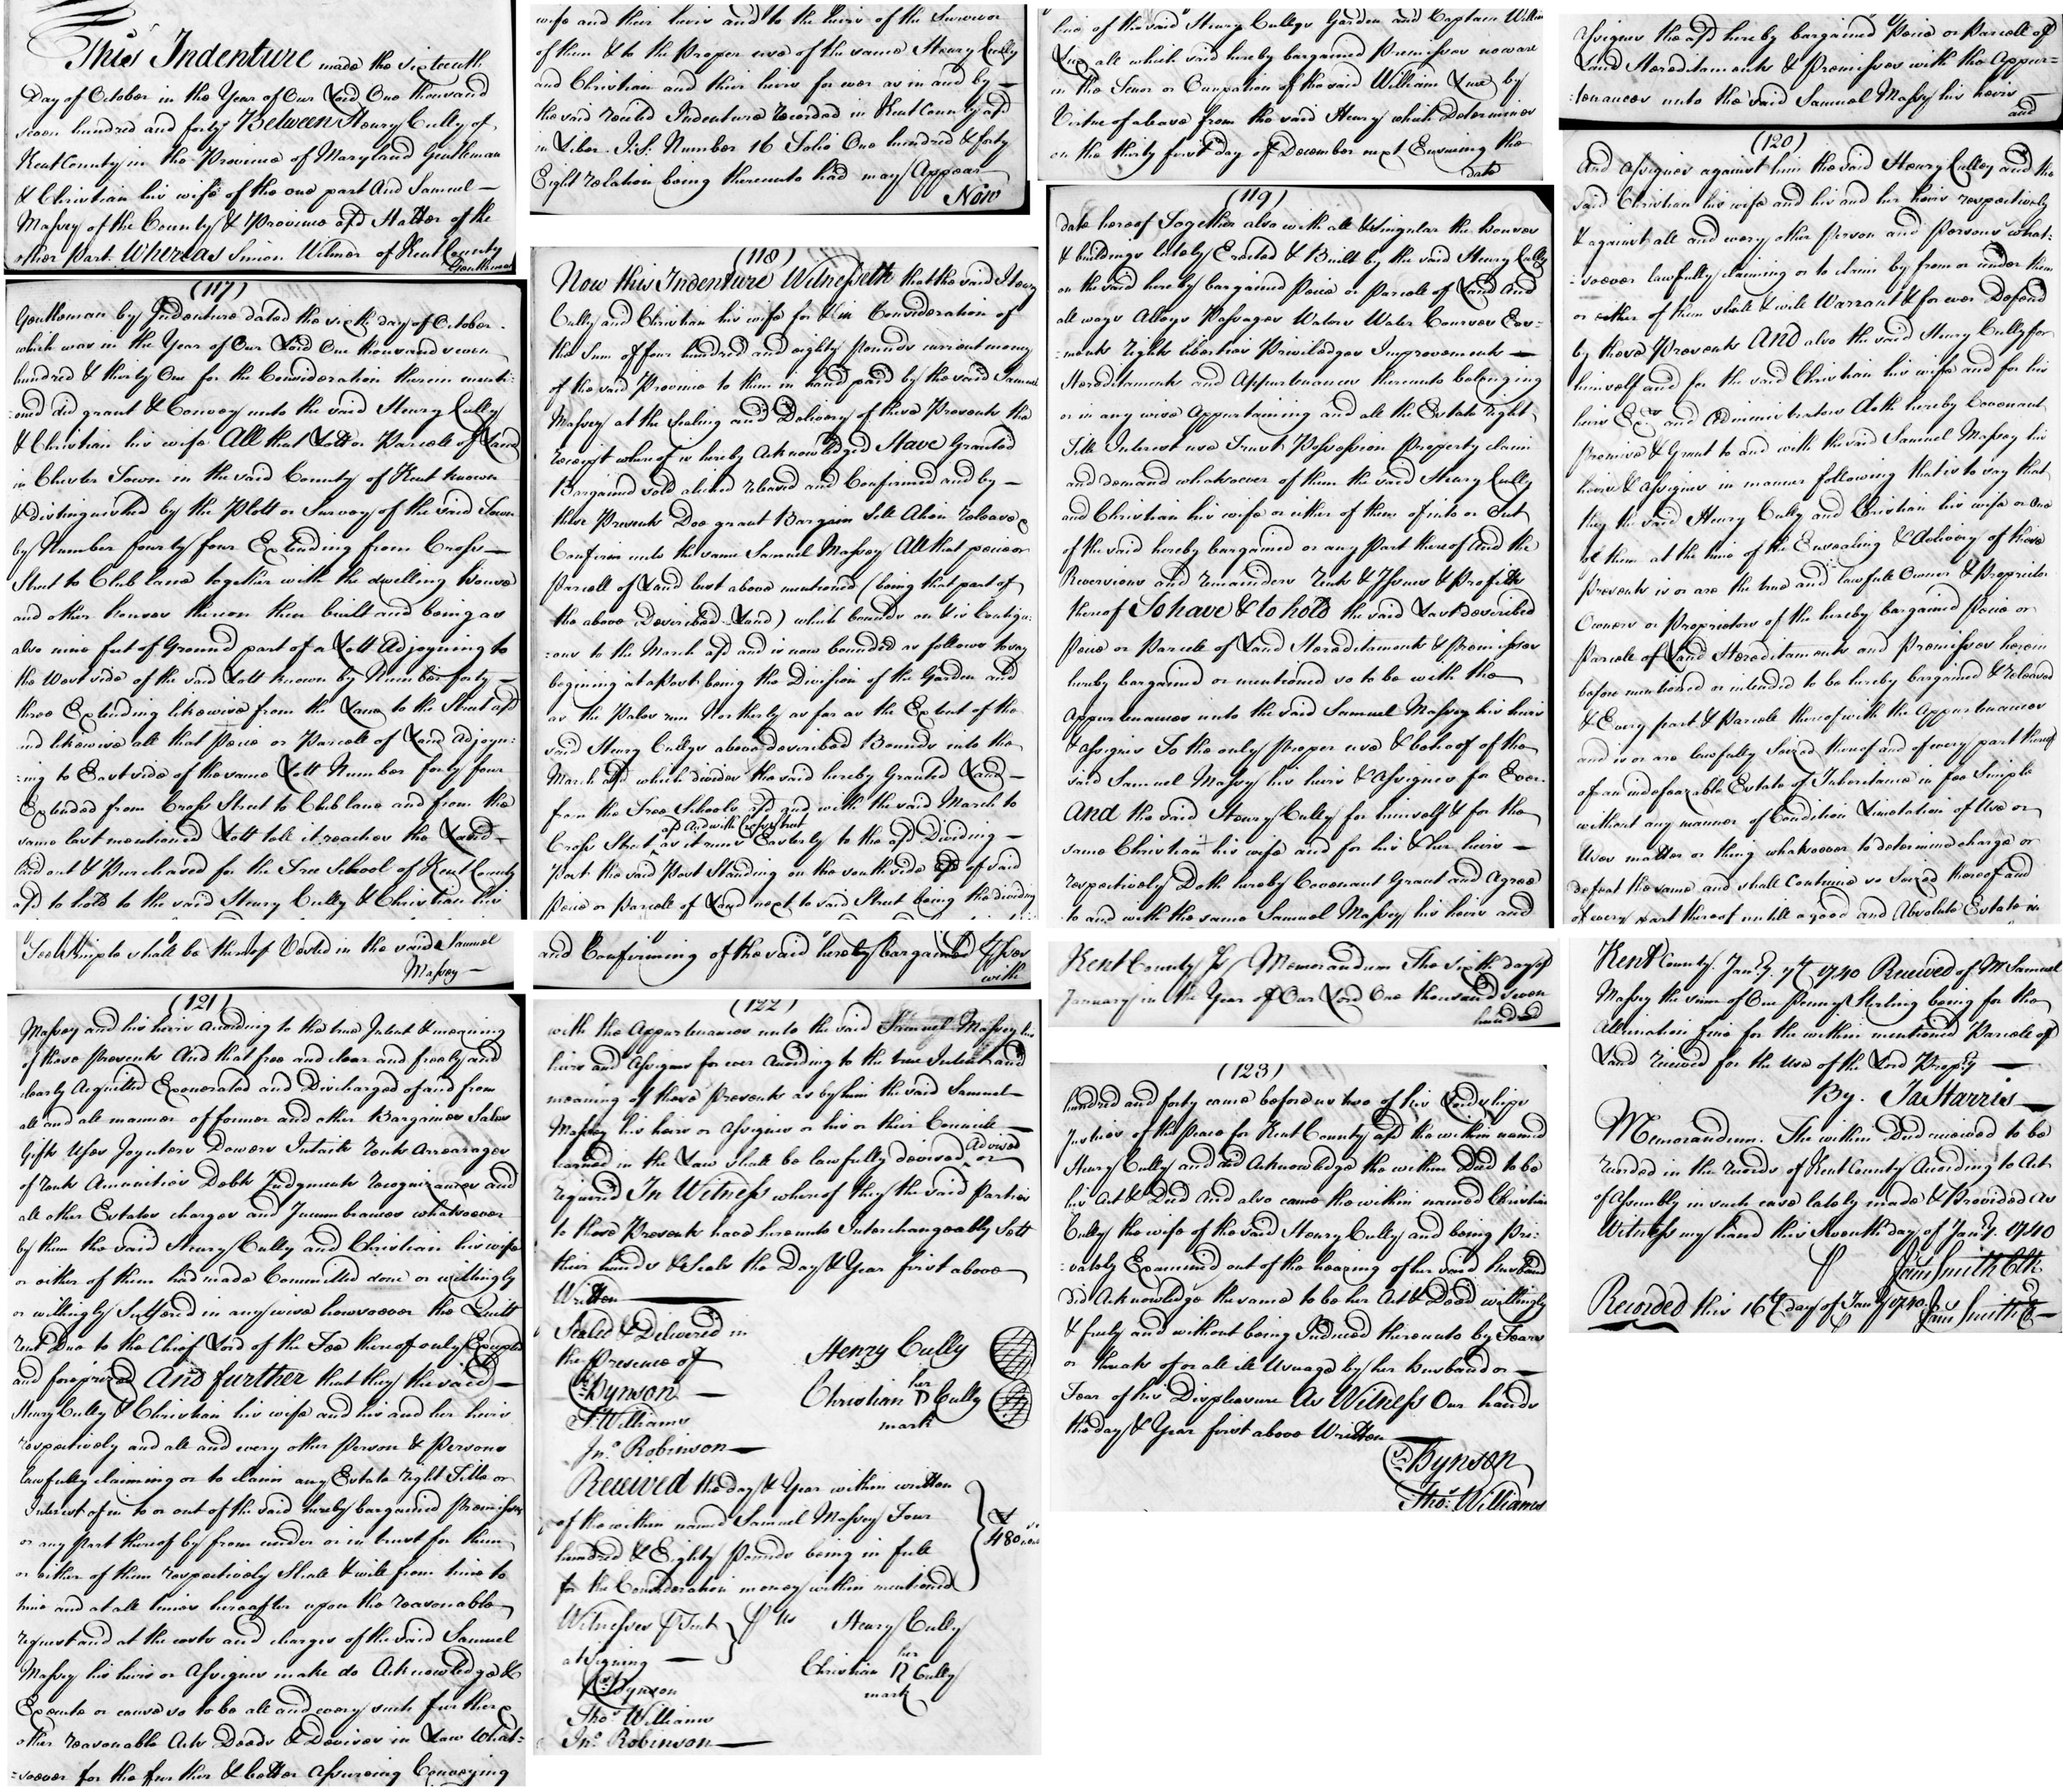 This Indenture made the sixteenth
Day of October in the Year of Our Lord One thousand
seven hundred and forty Between Henry Cully of
Kent County in the Province of Maryland Gentleman
& Christian his wife of the one part And Samuel
Massey of the County & Province afd Hatter of the
other Part. Whereas Simon Wilmer of Kent County
Gentleman
(117)
Gentleman by Indenture dated the sixth day of October
which was in the Year of Our Lord One thousand seven
hundred & thirty One for the Consideration therein menti:
:oned did grant & Convey unto the said Henry Cully
& Christian his wife All that Lott or Parcell of Land
in Chester Town in the said County of Kent known
& distinguished by the Plott or Survey of the said Town
by Number fourty four Extending from Cross
Street to Club lane together with the dwelling house
and other houses thereon then built and being as
also nine feet of Ground part of a Lott Adjoyning to
the West side of the said Lott known by Number forty
three Extending likewise from the Lane to the Street afd
and likewise all that peice or Parcell of Land Adjoyn:
:ing to East side of the same Lott Number forty four
Extended from Cross Street to Club lane and from the
same last mentioned Lott till it reaches the Land
laid out & Purchased for the Free School of Kent County
afd to hold to the said Henry Cully & Christian his
wife and their heirs and to the heirs of the Survivor
of them & to the Proper use of the same Henry Cully
and Christian and their heirs for ever as in and by
the said recited Indenture Recorded in Kent County afd
in Liber J.S. Number 16 Folio One hundred & forty
Eight relation being thereunto had may Appear
Now
(118)
Now this Indenture Witnesseth that the said Henry
Cully and Christian his wife for & in Consideration of
the Sum of four hundred and eighty pounds current money
of the said Province to them in hand paid by the said Samuel
Massey at the Sealing and Delivery of these Presents the
receipt whereof is hereby Acknowledged Have Granted
Bargained sold aliened released and Confirmed and by
these Presents Doe grant Bargain Sell Alien Release &
Confirm unto the same Samuel Massey All that peice or
Parcell of Land last above mentioned (being that part of
the above Described Land) which bounds on & is Contigu:
:ous to the March afd and is now bounded as follows to say
begining at a Post being the Division of the Garden and
as the Pales run Northerly as far as the Extent of the
said Henry Cullys above described Bounds into the
March afd which divides the said hereby Granted Land
from the Free Schools afd and with the said March to
Cross Street afd And with Cross Street as it runs Easterly to the afd Dividing
Post the said Post Standing on the south side of said
peice or Parcell of Land next to said Street being the dividing
line of the said Henry Cullys Garden and Captain William
all which said hereby bargained Premisses now are
in the Tenor or Occupation of the said William by
Virtue of a lease from the said Henry which Determines
on the thirty first day of December next Ensuing the
date
(119)
date hereof Together also with all & Singular the houses
& buildings lately Erected & Built by the said Henry Cully
on the said hereby bargained peice or Parcell of Land And
all ways Alleys Passages Waters Water Courses Eas:
:ments Rights liberties Priviledges Improvements
Hereditaments and Appurtenances thereunto belonging
or in any wise Appurtaining and all the Estate right
Title Interest use Trust Possession Property claim
and demand whatsoever of them the said Henry Cully
and Christian his wife or either of them of into or Out
of the said hereby bargained or any Part thereof And the
Reversions and remainders rents & Issues & Profitts
thereof To have & to hold the said Last Described
Peice or Parcell of Land Hereditaments & premisses
hereby bargained or mentioned so to be with the
Appurtenances unto the said Samuel Massey his heirs
& assigns To the only proper use & behoof of the
said Samuel Massey his heirs & Assignes for Ever
And the said Henry Cully for himself & for the
same Christian his wife and for his & her heirs
respectively Doth hereby Covenant Grant and Agree
to and with the same Samuel Massey his heirs and
Assignes the afd hereby bargained Peice or Parcell of
Land Hereditaments & Premisses with the Appur=
:tenances unto the said Samuel Massey his heirs
and
(120)
And Assignes against him the said Henry Culley and the
said Christian his wife and his and her heirs respectively
& against all and every other Person and Persons what:
:soever lawfully claiming or to claim by from or under them
or either of them shall & will Warrant & for ever Defend
by these Presents And also the said Henry Cully for
himself and for the said Christian his wife and for his
heirs Exrs and Administrators doth hereby Covenant
Promise & Grant to and with the said Samuel Massey his
heirs & Assignes in manner following that is to say that
they the said Henry Cully and Christian his wife or One
of them at the time of the Ensealing & Delivery of these
Presents is or are the true and lawfull Owner & Proprietor
Owners or Proprietors of the hereby bargained Peice or
Parcell of Land Hereditaments and Premisses herein
before mentioned or intended to be hereby bargained & released
& Every part & Parcell thereof with the Appurtenances
and is or are lawfully Seized thereof and of every part thereof
of an indefeazable Estate of Inheritance in fee Simple
without any manner of Condition Limetation of Use or
Uses matter or thing whatsoever to determine charge or
defeat the same and shall Continue so Seized thereof and
of every part thereof untill a good and Absolute Estate in
Fee Simple shall be thereof Vested in the said Samuel
Massey
(121)
Massey and his heirs according to the true Intent & meaning
of these presents And that free and clear and freely and
clearly Acquitted Exonerated and Discharged of and from
all and all manner of former and other Bargaines Sales
Gifts Uses Joyntors Dowers Intails rents Arrearages
of rents Annuities Debts Judgments recognizances and
all other Estates charges and Incumbrances whatsoever
by them the said Henry Cully and Christian his wife
or either of them had made Committed done or willingly
or willingly Suffered in any wise howsoever the Quitt
rent Due to the Chief Lord of the Fee thereof only Excepted
and foreprized And further that they the said
Henry Cully & Christian his wife and his and her heirs
respectively and all and every other Person & Persons
lawfully claiming or to claim any Estate right Title or
Interest of in to or out of the said hereby bargained premisses
or any part thereof by from under or in trust for them
or either of them respectively Shall & will from time to
time and at all times hereafter upon the reasonable
request and at the costs and charges of the said Samuel
Massey his heirs or Assignes make do Acknowledge &
Execute or cause so to be all and every such further &
other reasonable Acts Deeds & Devises in Law What=
:soever for the further & better Assureing Conveying
and Confirming of the said hereby bargained
with
(122)
with the Appurtenances unto the said Samuel Massey his
heirs and Assignes for ever according to the true Intent and
meaning of these presents as by him the said Samuel
Massey his heirs or Assignes or his or their Councill
learned in the Law shall be lawfully devised Advised or
required In Witness whereof they the said Parties
to these Presents have hereunto Interchangeably Sett
their hands & Seals the Day & Year first above
Written
Sealed & Delivered in
the presence of
Hynson
T. Williams
Jno. Robinson
Henry Cully
her
Christian Cully
mark
Received the day & Year within written
of the within named Samuel Massey Four
hundred & Eighty pounds being in full
for the Consideration money within mentioned
£
480
Witnesses
at Signing
Hynson
Thos. Williams
Jno. Robinson
Henry Cully
her
Christian Cully
mark
Kent County Memorandum The sixth day of
January in the Year of Our Lord One thousand seven
hundred
(123)
hundred and forty came before us two of his Lordships
Justices of the Peace for Kent County afd the within named
Henry Cully and did Acknowledge the within Deed to be
his Act & Deed And also came the within named Christian
Cully the wife of the said Henry Cully and being Pri:
:vately Examined out of the hearing of her said husband
did Acknowledge the same to be her Act & Deed willingly
& freely and without being Induced thereunto by Fears
or threats of or all ill Usuage by her husband or
Fear of his Displeasure As Witness Our hands
the day & Year first above Written
Hynson
Thos. Williams
Kent County. Janry. 7th 1740 Received of Mr Samuel
Massey the sum of One penny Sterling being for the
Allination fine for the within mentioned Parcell of
Land received for the use of the Lord Propry
By. Ja Harris
Memorandum. The within Deed received to be
recorded in the records of Kent County According to Act
of Assembly in such case lately made & Provided As
Witness my hand this Seventh day of Janry. 1740
James Smith Clk
Recorded this 16th day of Janry 1740. James Smith